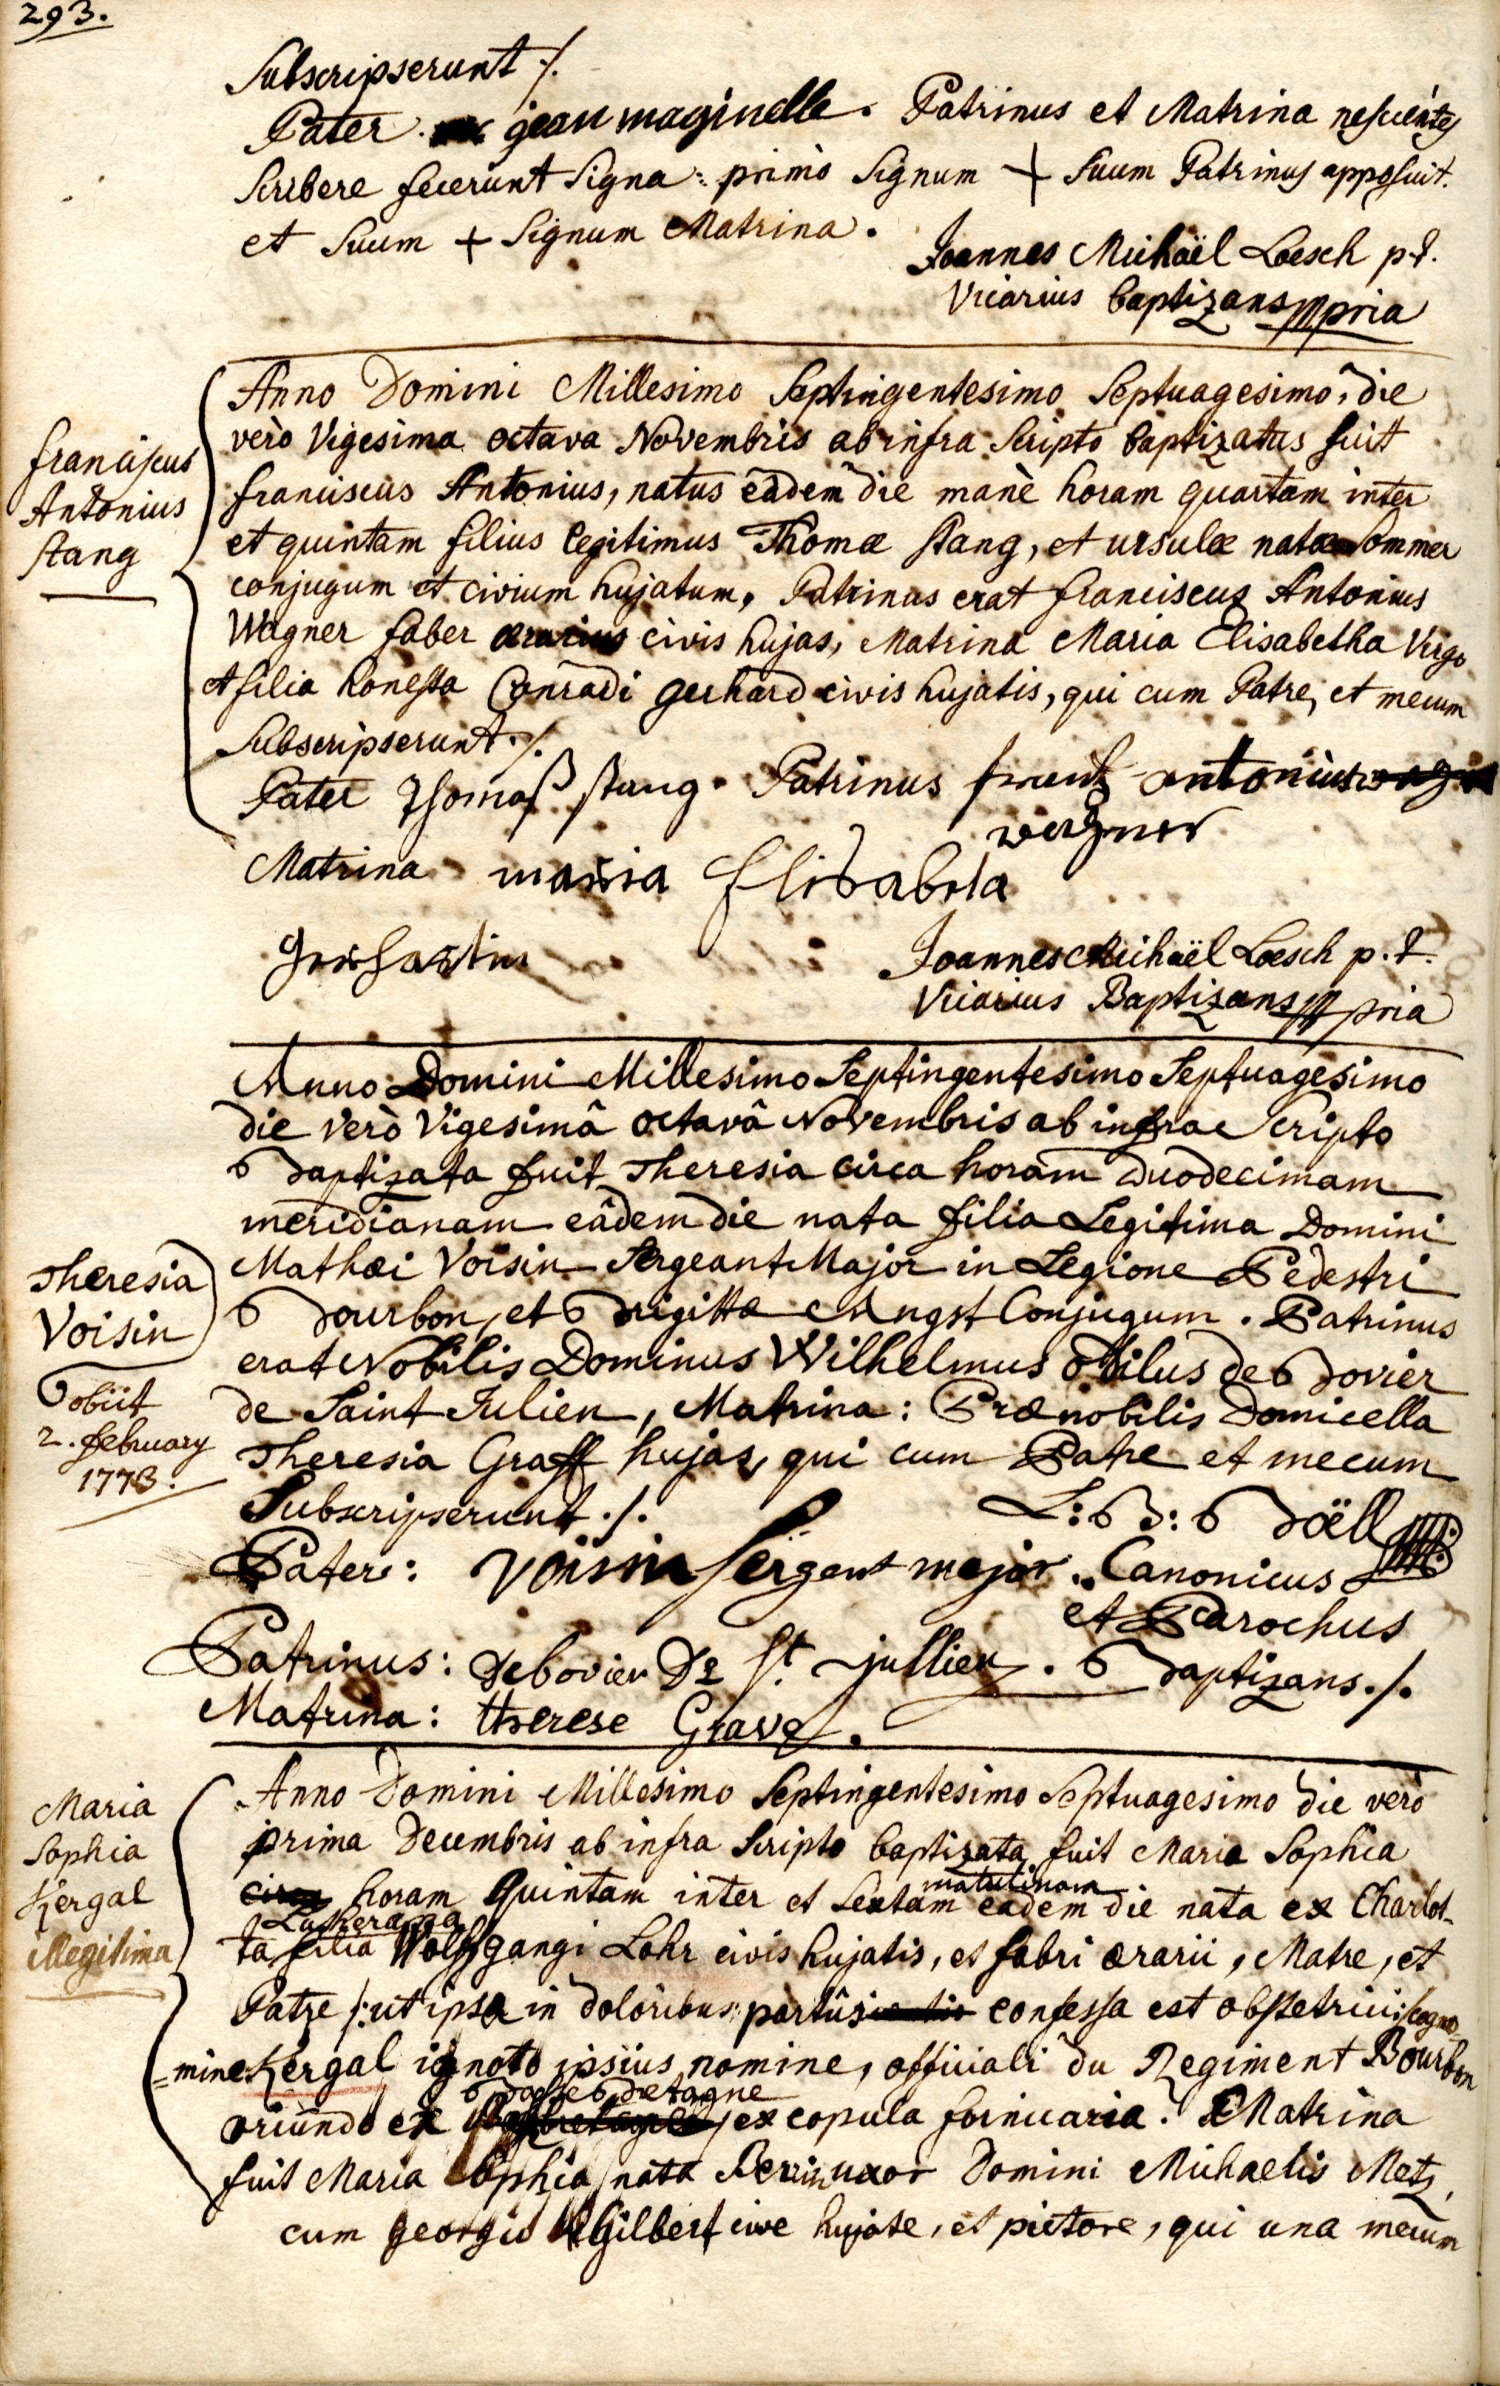 293.
Subscripserunt ./.
Pater jean maginelle. Patrinus et Matrina nescientes
Scribere fecerunt Signa: primò Signum + Suum Patrinus apposuit.
et Suum + Signum Matrina.
Joannes Michaël Loesch p.t.
Vicarius baptizans mpria
Anno Domini Millesimo Septingentesimo Septuagesimo, die
verò Vigesima octava Novembris ab infra Scripto baptizatus fuit
franciscus Antonius, natus eâdem die manè horam quartam inter
et quintam filius legitimus Thomæ stang, et ursulæ natæ Sommer
conjugum et civium hujatum, Patrinus erat franciscus Antonius
Wagner faber ærarius civis hujas, Matrina Maria Elisabetha Virgo
et filia honesta Conradi gerhard civis hujatis, qui cum Patre, et mecum
Subscripserunt ./.
franciscus
Antonius
stang
Pater Thomaß stang. Patrinus frantz antonius
wagner
Matrina maria Elisabeta
gerhartin
Joannes Michaël Loesch p.t.
Vicarius Baptizans mpria
Anno Domini Millesimo Septingentesimo Septuagesimo
die verò Vigesimâ octavâ Novembris ab infra Scripto
Baptizata fuit Theresia circa horam duodecimam
meridianam eâdem die nata filia Legitima Domini
Mathæi Voisin Sergeant Major in Legione Pedestri
Bourbon, et Brigittæ Angst Conjugum. Patrinus
erat Nobilis Dominus Wilhelmus Odilus de Bovier
de Saint Julien, Matrina: Prænobilis Domicella
Theresia Graff hujas, qui cum Patre et mecum
Subscripserunt ./.
Theresia
Voisin
obiit
2. february
1773.
L: B: Boëll
Pater: Voisin Sergent major. Canonicus
et Parochus
Patrinus: Debovier De St. jullien. Baptizans ./.
Matrina: therese Grave.
Anno Domini Millesimo Septingentesimo Septuagesimo die verò
prima Decembris ab infra Scripto baptizata fuit Maria Sophia
circa horam Quintam inter et Sextam matutinam eâdem die nata ex Charlot-
ta Lutherana filia Wolffgangi Lohr civis hujatis, et fabri ærarii, Matre, et
Patre /: ut ipsa in doloribus partûs confessa est obstetrici :/ cogno-
=mine Kergal ignoto ipsius nomine, officiali du Regiment Bourbon
oriundo ex Basse bretagne, ex copula fornicaria. Matrina
fuit Maria Sophia nata uxor Domini Michaelis Metz,
cum georgio Gilbert cive hujate, et pictore, qui una mecum
Maria
Sophia
Kergal
illegitima